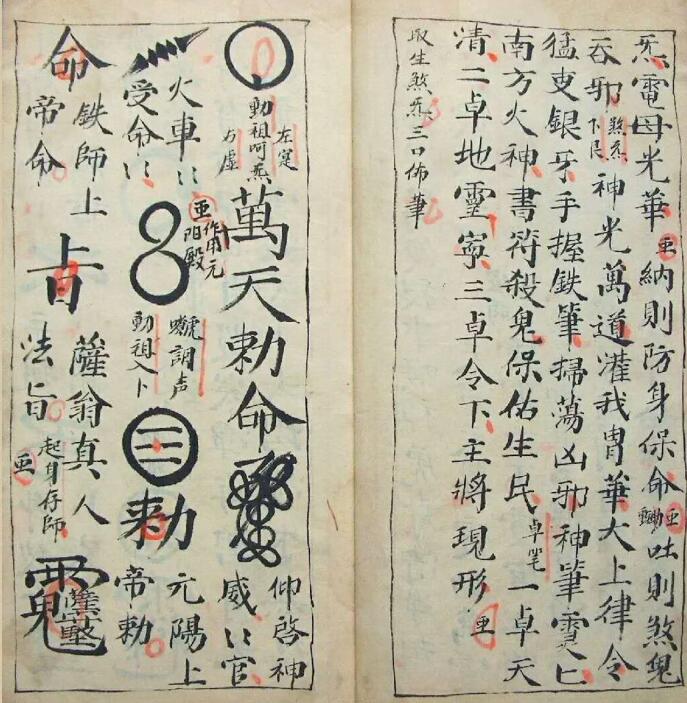 炁電母光華亜納則防身保命亜吐則煞鬼
吞邪煞炁下艮神光萬道灌我胃華大上律令
猛吏銀牙手握鉄筆掃蕩凶邪神筆
南方火神書符殺鬼保佑生民卓笔一卓天
清二卓地靈寧三卓令下主將現形亜
取生煞炁三口佈筆
左寔
動祖呵炁
右虛
萬天勅命
仰啓神
威〻官
火車〻
受命〻
亜作用元
陽殿
調声
動祖入下
勅
元陽上
帝勅
命
鉄師上
帝命
薩翁真人
法旨
起身存師
亜